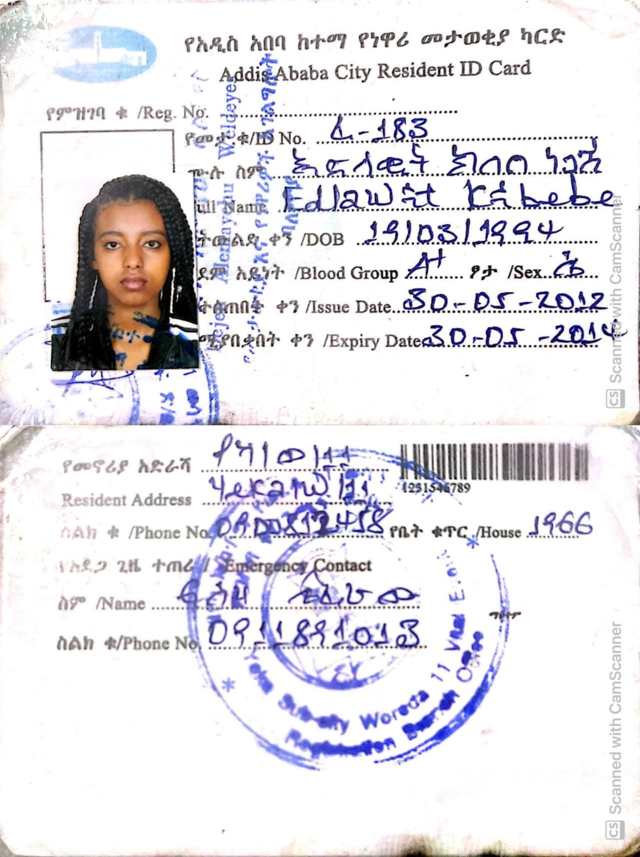 የአዲስ አበባ ከተማ የነዋሪ መታወቂያ ካርድ
Addis Ababa City Resident ID Card
የምዝገባ ቁ /Reg. No.
የመታ ቁ/ID No. 183
ሙሉ ስም እድላዊት ከበበ
Full Name Edlawit Kebebe
ትውልድ ቀን /DOB 19/03/1994
ደም አይነት /Blood Group A+ ፆታ /Sex ሴ
የተሰጠበት ቀን /Issue Date 30-05-2012
የሚያበቃበት ቀን /Expiry Date 30-05-2014
Alemayehu Weldeyes
የመኖሪያ አድራሻ የካ/ወ/11
Resident Address Yeka/W/11
1251546789
ስልክ ቁ /Phone No. 0900812458 የቤት ቁጥር /House 1966
የአደጋ ጊዜ ተጠሪ / Emergency Contact
ስም /Name
ስልክ ቁ/Phone No. 0911891013
Yeka Sub-city Woreda 11 Vital E
Registration Branch Office
CS Scanned with CamScanner
CS Scanned with CamScanner